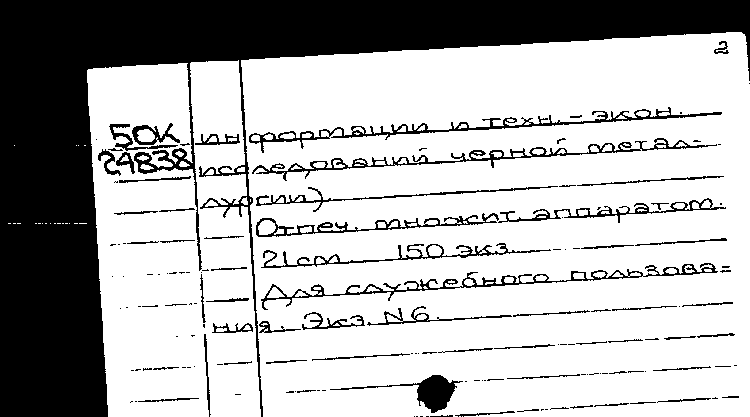 2
50К информации и техн.-экон.
24838 исследований черной метал-
лургии).
Отпеч. множит. аппаратом.
21 см. 150 экз.
Для служебного пользова-
ния. Экз. N6.